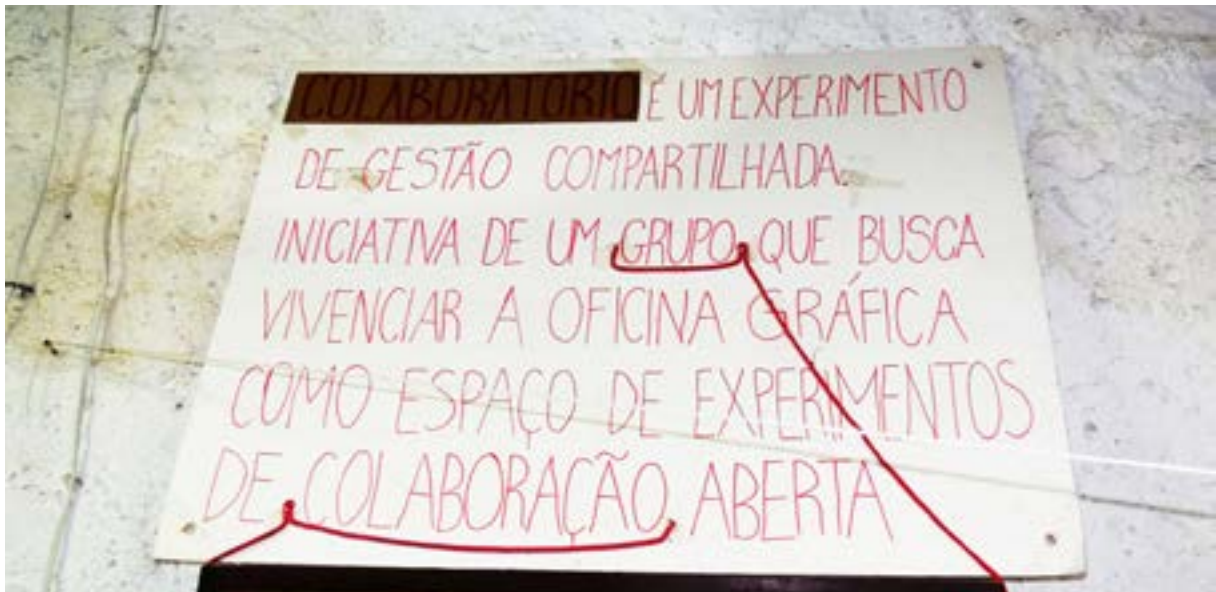 COLABORATÓRIO É UM EXPERIMENTO
DE GESTÃO COMPARTILHADA.
INICIATIVA DE UM GRUPO QUE BUSCA
VIVENCIAR A OFICINA GRÁFICA
COMO ESPAÇO DE EXPERIMENTOS
DE COLABORAÇÃO ABERTA